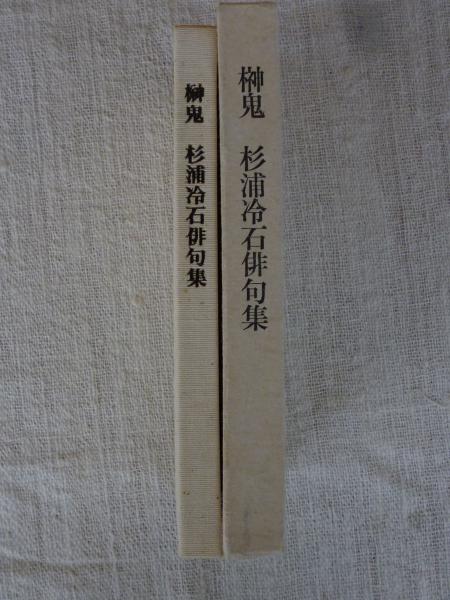 榊鬼　杉浦冷石俳句集
榊鬼　杉浦冷石俳句集